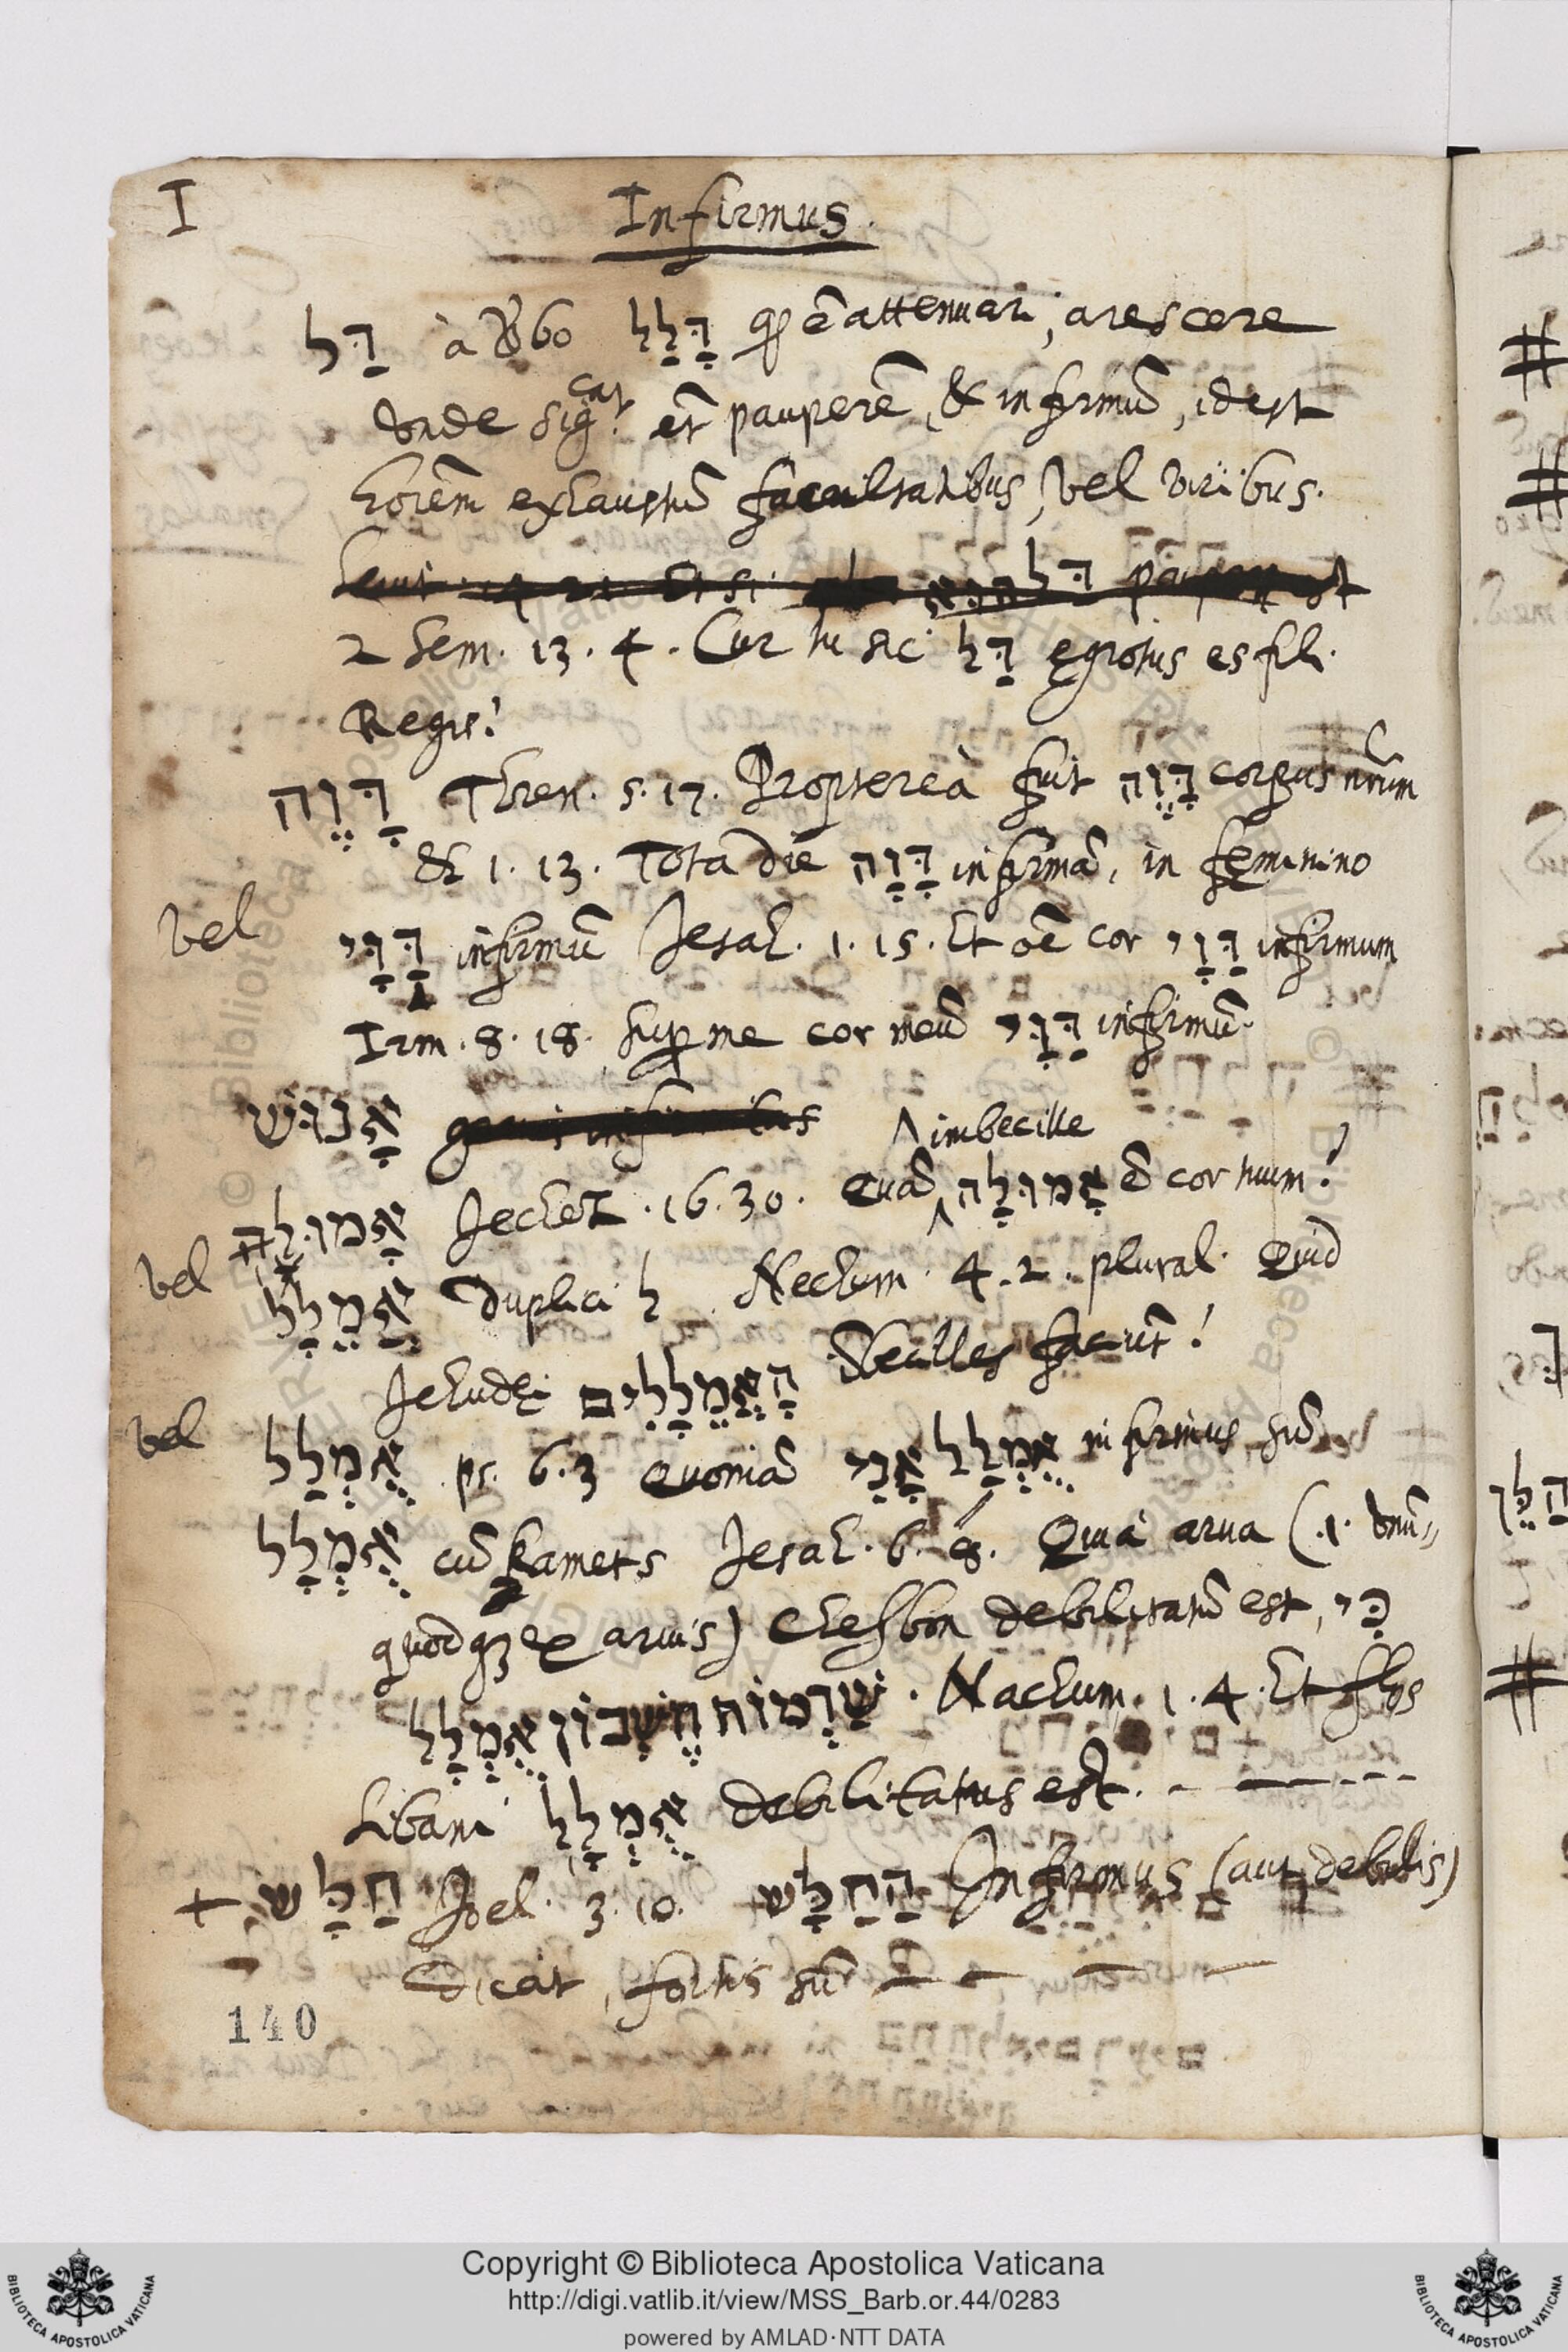 I
Infirmus.
דַּל à ỽ̃bo דָּלַל q̃ ẽ attenuari, arescere
Vnde sig̃cat et̃ pauperẽ, & infirmũ, id est
hoĩem exhaustũ facultatibus, vel viribus.
2 Sem. 13. 4. Cur tu sic דַּל ęgrotus es fili
Regis?
דָּוֶה Thren. 5. 17. Proptereà fuit דָּוֶה corpus nr̃um
& 1. 13. Tota die דָּוָה infirmã, in fęminino
vel דַּוָּי infirmũ Jesah. 1. 15. Et oẽ cor דַּוָּי infirmum
Irm. 8. 18. Sup me cor meũ דַּוָּי infirmũ.
אָנוּשׁ
imbecille
אָמוּלָה Jechez. 16. 30. Quã אָמוּלָה ẽ cor tuum?
vel אֲמֵלָל duplici ל Nechum. 4. 2. plural. Quid
Jehudęi הָאֲמֵלָלִים ĩbecilles faciũt?
vel אֻמְלַל ps. 6. 3 Quoniã אֻמְלַל אָנִי infirmus sũ
אֻמְלָל cũ kamets Jesah. 6. 8. Quia arua (.i. vnũ-
quodq3 ex aruis) Chesbon debilitatũ est, כִּי
שַׁדְמוֹת חֶשְׁבּוֹן אֻמְלָל. Nachum. 1. 4. Et flos
Libani אֻמְלָל debilitatus est. - - - - -
+ חַלָּשׁ Joel. 3. 10. הַחַלָּשׁ Infirmus (aut debilis)
Dicat, fortis sũ - - - -
140
© Biblioteca Apostolica Vaticana
Copyright © Biblioteca Apostolica Vaticana
http://digi.vatlib.it/view/MSS_Barb.or.44/0283
powered by AMLAD·NTT DATA
BIBLIOTECA APOSTOLICA VATICANA
BIBLIOTECA APOSTOLICA VATICANA